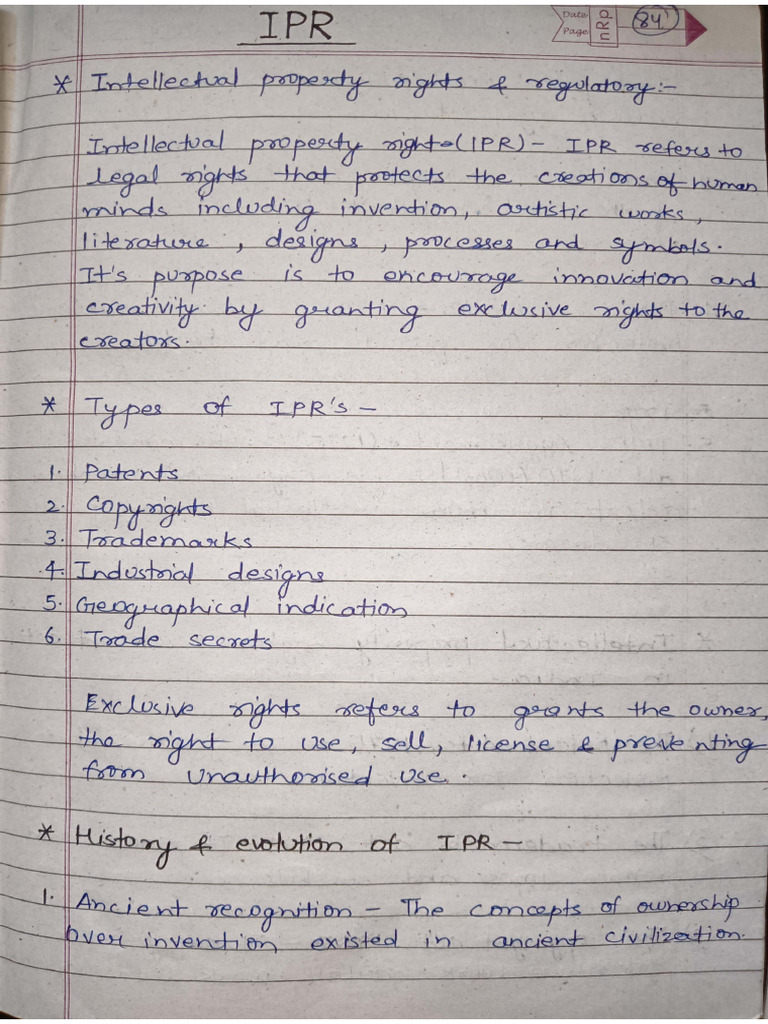 IPR
Date
Page
nRp
84
* Intellectual property rights & regulatory:-
Intellectual property rights(IPR) - IPR refers to
legal rights that protects the creations of human
minds including invention, artistic works,
literature, designs, processes and symbols.
It's purpose is to encourage innovation and
creativity by granting exclusive rights to the
creators.
* Types of IPR's -
1. Patents
2. Copyrights
3. Trademarks
4. Industrial designs
5. Geographical indication
6. Trade secrets
Exclusive rights refers to grants the owner,
the right to use, sell, license & preventing
from unauthorised use.
* History & evolution of IPR -
1. Ancient recognition - The concepts of ownership
over invention existed in ancient civilization.